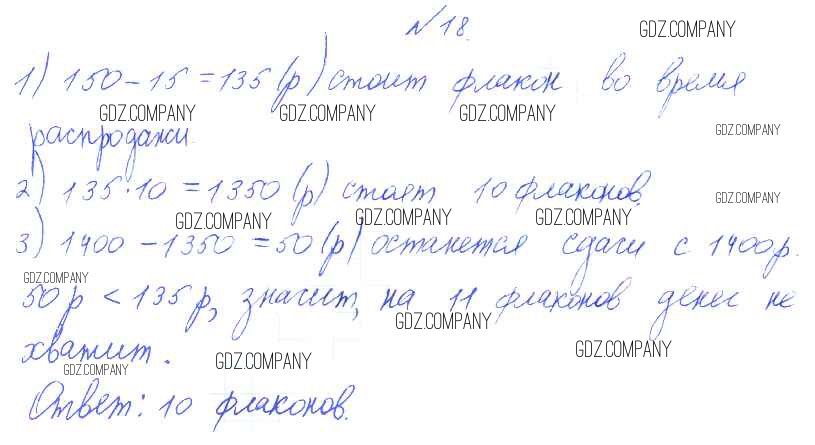 №18.
GDZ.COMPANY
1) 150 - 15 = 135 (р) стоит флакон во время
GDZ.COMPANY GDZ.COMPANY GDZ.COMPANY
распродажи
GDZ.COMPANY
2) 135 · 10 = 1350 (р) стоят 10 флаконов.
GDZ.COMPANY
GDZ.COMPANY GDZ.COMPANY GDZ.COMPANY
3) 1400 - 1350 = 50 (р) останется сдачи с 1400 р.
GDZ.COMPANY
50 р < 135 р, значит, на 11 флаконов денег не
GDZ.COMPANY
хватит.
GDZ.COMPANY GDZ.COMPANY GDZ.COMPANY
Ответ: 10 флаконов.